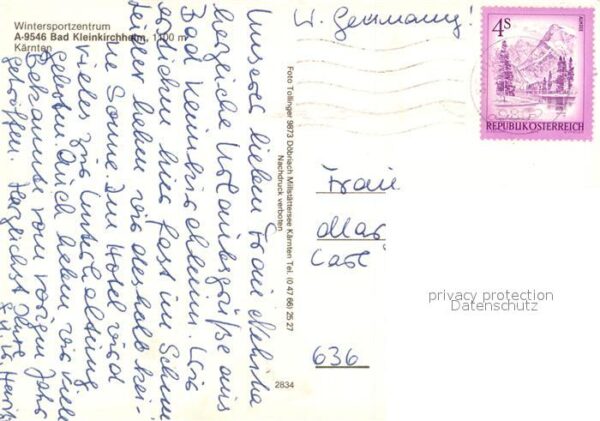 Wintersportzentrum
A-9546 Bad Kleinkirchheim, 1100 m
Kärnten
W. Germany!
4S
ALMSEE
REPUBLIK ÖSTERREICH
Unserer lieben Frau
herzliche Urlaubsgrüße aus
Bad Kleinkirchheim. Wir
hier fast im Schnee
leider haben wir deshalb kei-
ne Sonne. Im Hotel wird
vieles zur Unterhaltung
geboten. Auch haben wir viele
Bekannte vom vorigen Jahr
getroffen. Herzlichst Ihre
Foto Tollinger 9873 Döbriach Millstättersee Kärnten Tel. (0 47 66) 25 27
Nachdruck verboten
2834
Frau
Mar
Carl
636
privacy protection
Datenschutz